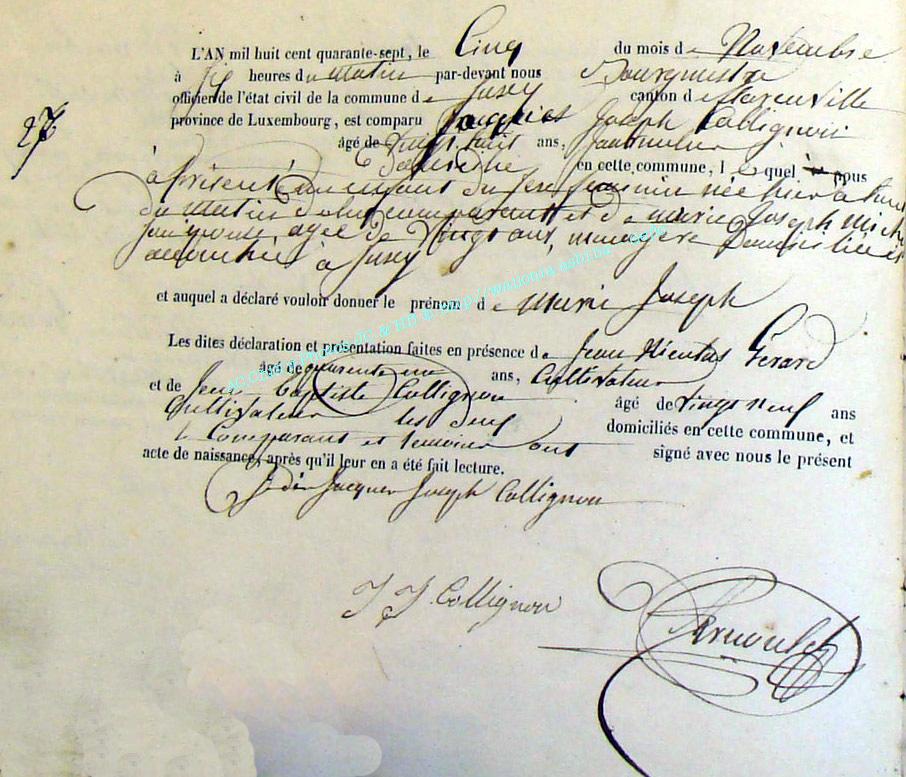 L'AN mil huit cent quarante-sept, le Cinq du mois de Novembre
à heures du matin par-devant nous Bourgmestre
officier de l'état civil de la commune de Jusey canton de
province de Luxembourg, est comparu Jacques Joseph Collignon
âgé de vingt huit ans,
Domicilié en cette commune, lequel nous
27
à présenté un enfant du sexe féminin née hier à
du matin de lui comparant et de marie Joseph
agée de vingt ans, menagère Domiciliée
à Jusey
et auquel a déclaré vouloir donner le prénom de marie Joseph
Les dites déclaration et présentation faites en présence de Jean Nicolas Gérard
âgé de quarante un ans, Cultivateur
et de Jean Baptiste Collignon âgé de vingt neuf ans
Cultivateur les deux domiciliés en cette commune, et
Comparant et temoins ont signé avec nous le présent
acte de naissance, après qu'il leur en a été fait lecture.
Jacques Joseph Collignon
J J Collignon